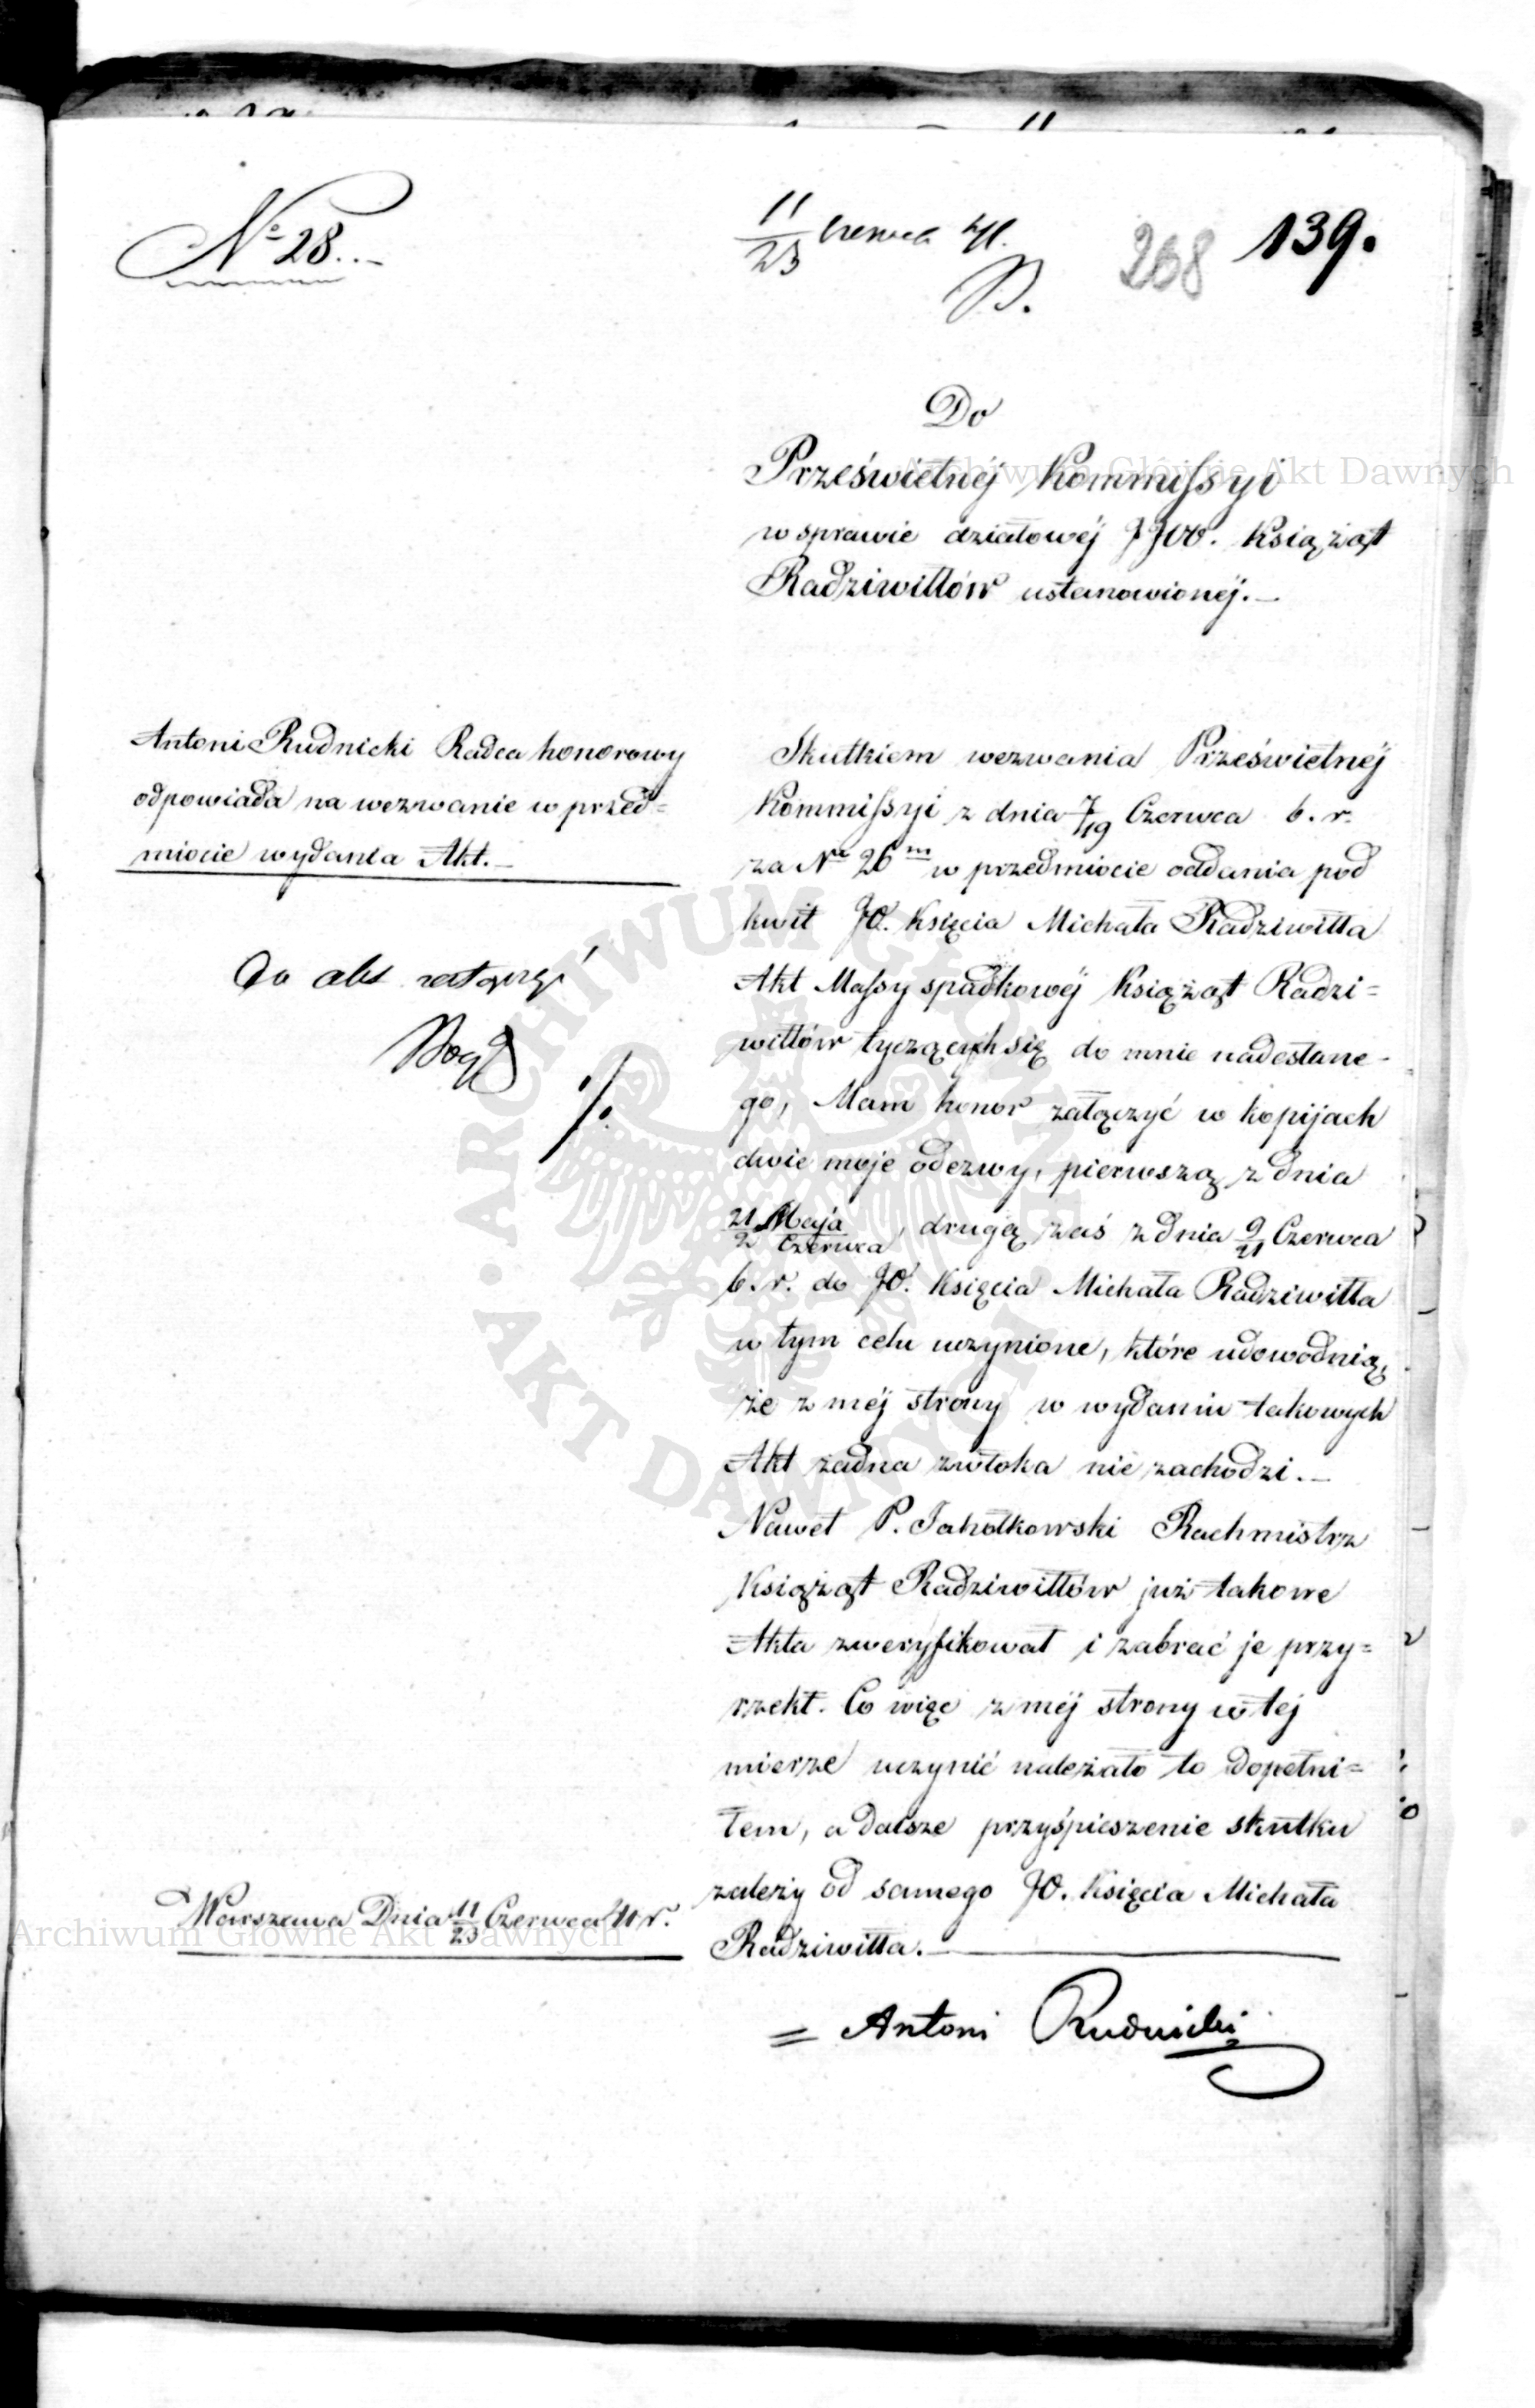 № 28.
11/23 Czerwca 41.
268 139.
Do
Prześwietnéj Kommissyi
w sprawie działowéj JJOO. Książąt
Radziwiłłów ustanowionéj.—
Antoni Rudnicki Radca honorowy
odpowiada na wezwanie w przed=
miocie wydania Akt.—
Do akt
Skutkiem wezwania Prześwietnéj
Kommissyi z dnia 7/19 Czerwca b. r.
za Nr 26m w przedmiocie oddania pod
kwit JO. Księcia Michała Radziwiłła
Akt Massy spadkowéj Książąt Radzi=
wiłłów tyczących się do mnie nadesłane-
go, Mam honor załączyć w kopijach
dwie moje odezwy, pierwszą z dnia
21 Maja/2 Czerwca, drugą zaś z dnia 9/21 Czerwca
b. r. do JO. Księcia Michała Radziwiłła
w tym celu uczynione, które udowodnią,
że z méj strony w wydaniu takowych
Akt żadna zwłoka nie zachodzi.—
Nawet P. Jahołkowski Rachmistrz
Książąt Radziwiłłów już takowe
Akta zweryfikował i zabrać je przy=
rzekł. Co więc z méj strony w téj
mierze uczynić należało to dopełni=
łem, a dalsze przyśpieszenie skutku
zależy od samego JO. Księcia Michała
Radziwiłła.—
Warszawa Dnia 11/23 Czerwca 41 r.
= Antoni Rudnicki
Archiwum Główne Akt Dawnych
Archiwum Główne Akt Dawnych
ARCHIWUM GŁÓWNE
AKT DAWNYCH